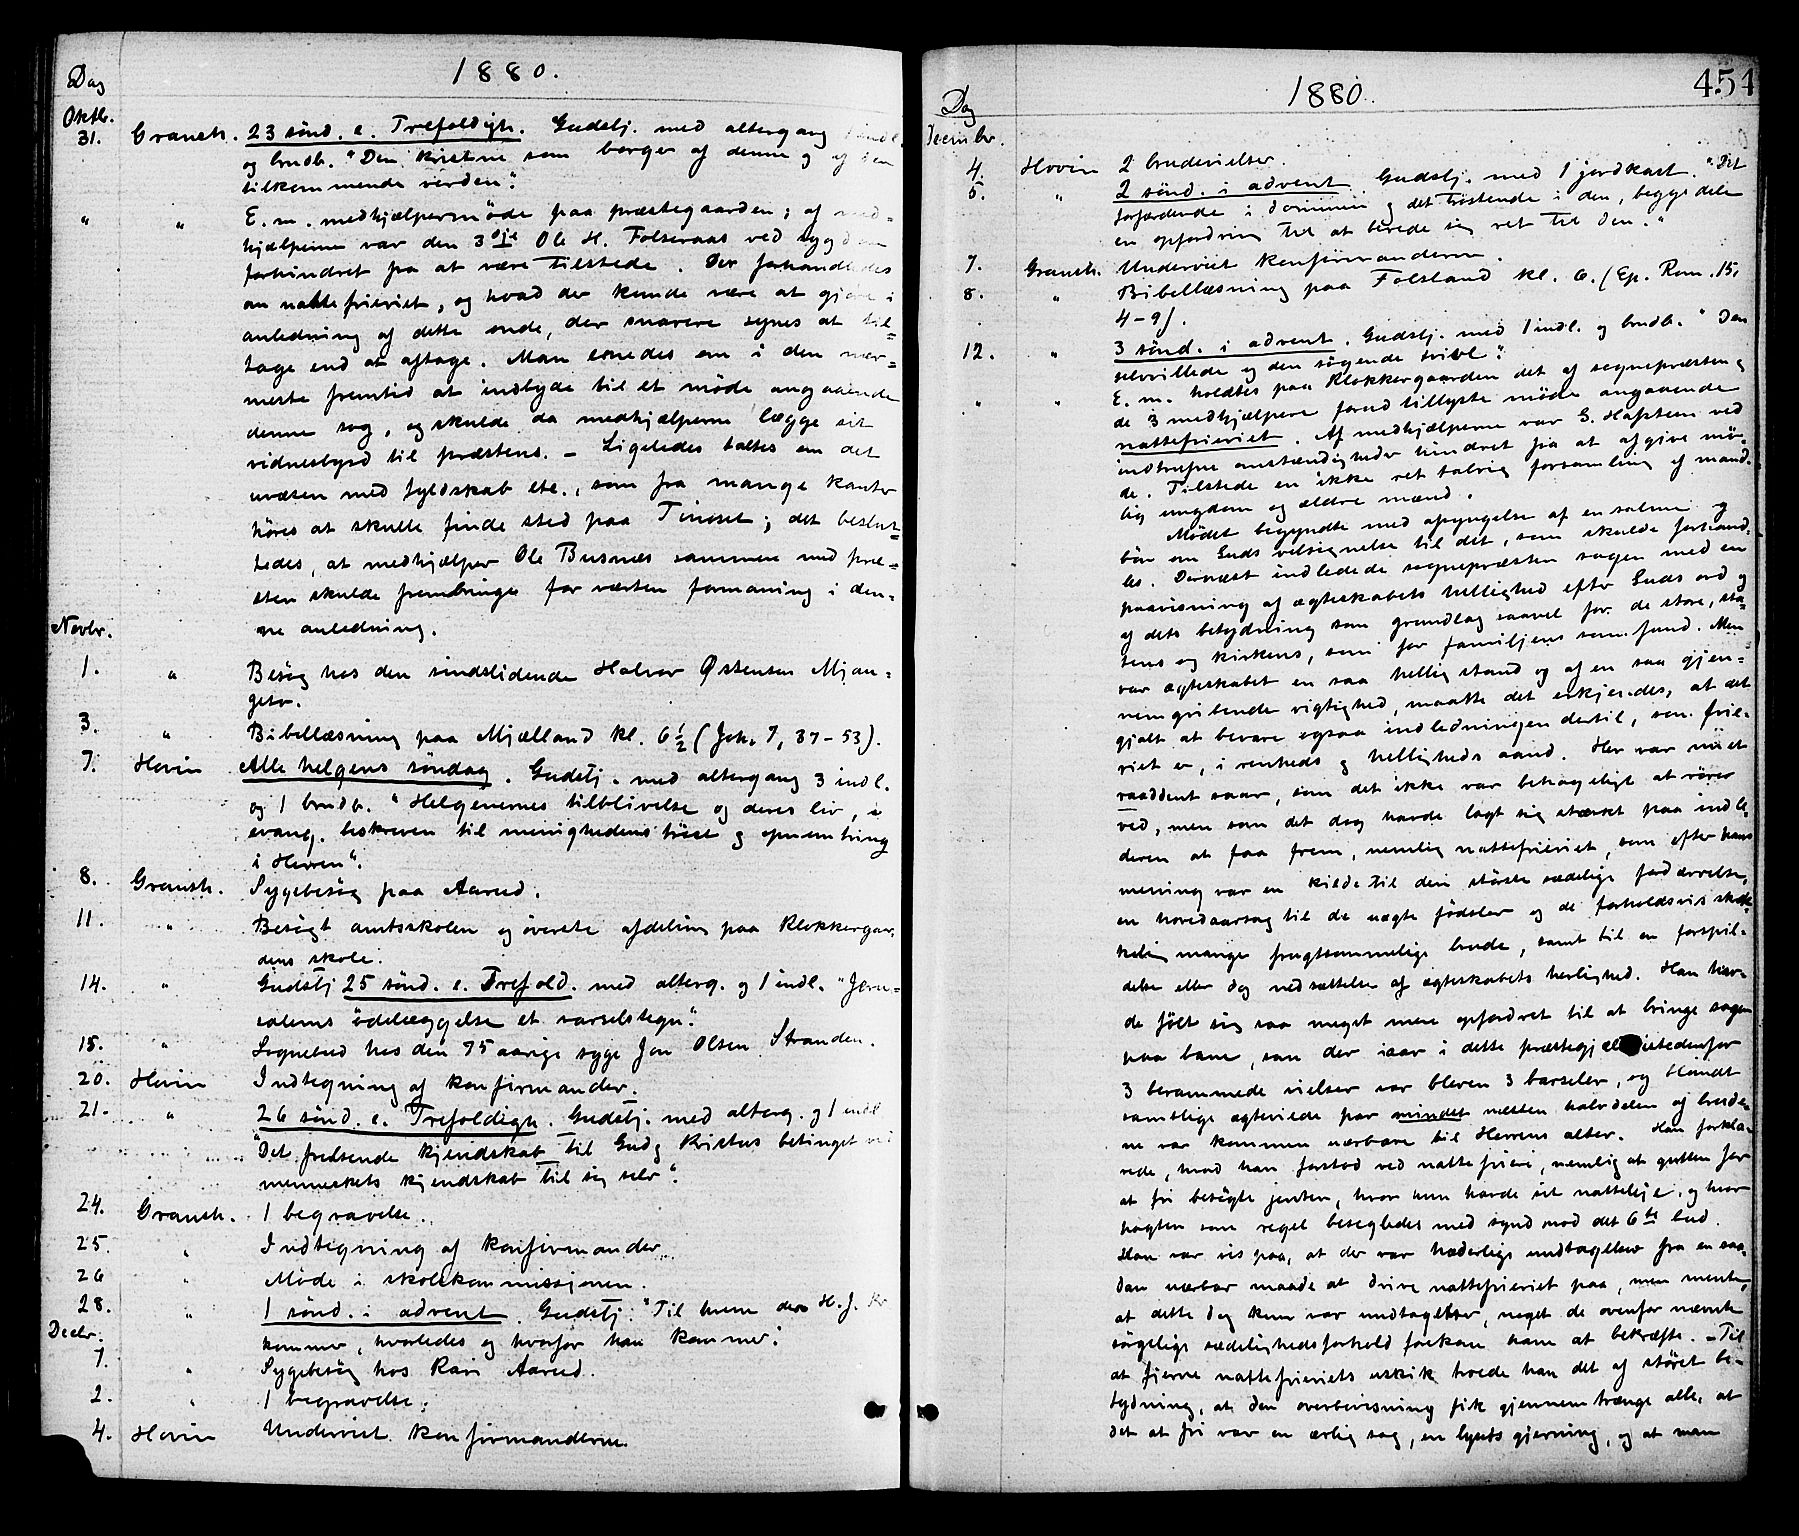 1880.
Dag
Oktb.
31. Gransh. 23 sönd. e. Trefoldigh. Gudstj. med altergang 1 indl.
og brudv. "Den kristne som borger af denne og af den
tilkommende verden".
" " E. m. medhjælpermöde paa præstegaarden; af med-
hjælperne var den 3die Ole H. Folseraas ved sygdom
forhindret fra at være tilstede. Der forhandledes
om nattefrieriet, og hvad der kunde være at gjöre i
anledning af dette onde, der snarere synes at til-
tage end at aftage. Man enedes om i den nær-
meste fremtid at indbyde til et möde angaaende
denne sag, og skulde da medhjælperne lægge sit
vidnesbyrd til præstens. – Ligeledes taltes om det
uvæsen med fyldskab etc., som fra mange kanter
höres at skulle finde sted paa Tinoset; det beslut-
tedes, at medhjælper Ole Busnæs sammen med præ-
sten skulde frembringe for værten formaning i den-
ne anledning.
Novbr.
1. " Besög hos den sindslidende Halvor Østensen Mjan-
getv.
3. " Bibellæsning paa Mjælland kl. 6½ (Joh. 7, 37–53).
7. Hovin Alle helgens söndag. Gudstj. med altergang 3 indl.
og 1 brudv. "Helgenernes tilblivelse og deres liv, i
evang. beskreven til menighedens tröst og opmuntring
i Herren".
8. Gransh. Sygebesög paa Aarud.
11. " Besögt amtsskolen og överste afdeling paa Klokkergaar-
dens skole.
14. " Gudstj 25 sönd. e. Trefold. med alterg. og 1 indl. "Jeru-
salems ödelæggelse et varselstegn".
15. " Sognebud hos den 75 aarige syge Jon Olsen Stranden.
20. Hovin Indtegning af konfirmander.
21. " 26 sönd. e. Trefoldigh. Gudstj. med alterg. og 1 indl.
"Det frelsende kjendskab til Gud og Kristus betinget ved
menneskets kjendskab til sig selv".
24. Gransh. 1 begravelse.
25. " Indtegning af konfirmander
26 " Möde i skolekommissjonen.
28. " 1 sönd. i advent. Gudstj. "Til hvem den H. J. Kr
kommer, hvorledes og hvorfor han kommer".
Decbr.
1. " Sygebesög hos Kari Aarud.
2. " 1 begravelse.
4. Hovin Undervist konfirmanderne.
1880.
454
Dag
Decembr.
4. Hovin 2 brudevielser.
5. " 2 sönd. i advent. Gudstj. med 1 jordkast. "Det
forfærdende i dommen og det tröstende i den, begge dele
en opfordring til at berede sig ret til den."
7. Gransh. Undervist konfirmanderne.
8. " Bibellæsning paa Folsland kl. 6. (Ep. Rom. 15,
4–9).
12. " 3 sönd. i advent. Gudstj. med 1 indl. og brudv. "Den
selvvillede og den sögende tvivl".
" " E. m. holdtes paa Klokkergaarden det af sognepræsten og
de 3 medhjælpere forud tillyste möde angaaende
nattefrieriet. Af medhjælperne var G. Haftun ved
indtrufne omstændigheder hindret fra at afgive mö-
de. Tilstede en ikke ret talrig forsamling af mand-
lig ungdom og ældre mænd.
Mödet begyndte med afsyngelse af en salme og
bön om Guds velsignelse til det, som skulde forhand-
les. Dernæst indledede sognepræsten sagen med en
paavisning af ægteskabets hellighed efter Guds ord og
af dets betydning som grundlag saavel for de store, sta-
tens og kirkens, som for familjens samfund. Men
var ægteskabet en saa hellig stand og af en saa gjen-
nemgribende vigtighed, maatte det erkjendes, at det
gjaldt at bevare ogsaa indledningen dertil, som frie-
riet er, i renheds og helligheds aand. Her var nu et
raaddent saar, som det ikke var behageligt at röre
ved, men som det dog havde lagt sig stærkt paa indle-
deren at faa frem, nemlig nattefrieriet, som efter hans
mening var en kilde til den störste sædelige fordærvelse,
en hovedaarsag til de uægte födsler og de forholdsvis skræk-
kelig mange frugtsommelige brude, samt til en forspil-
delse eller dog nedsættelse af ægteskabets herlighed. Han hav-
de fölt sig saa meget mere opfordret til at bringe sagen
paa bane, som der iaar i dette præstegjæld istedenfor
3 berammede vielser var bleven 3 barseler, og blandt
samtlige ægteviede par mindst næsten halvdelen af brude-
ne var kommen uærbare til Herrens alter. Han forkla-
rede, hvad han forstod ved nattefrieri, nemlig at gutten for
at fri besögte jenten, hvor hun havde sit natteleje, og hvor
pagten som regel besegledes med synd mod det 6te bud.
Han var vis paa, at der var hæderlige undtagelser fra en saa-
dan uærbar maade at drive nattefrieriet paa, men mente,
at dette dog kun var undtagelser, noget de ovenfor nævnte
sörgelige sædelighedsforhold forekom ham at bekræfte. – Til
at fjerne nattefrieriets uskik troede han det af störst be-
tydning, at den overbevisning fik gjennemtrænge alle, at
det at fri var en ærlig sag, en lysets gjerning, og at man